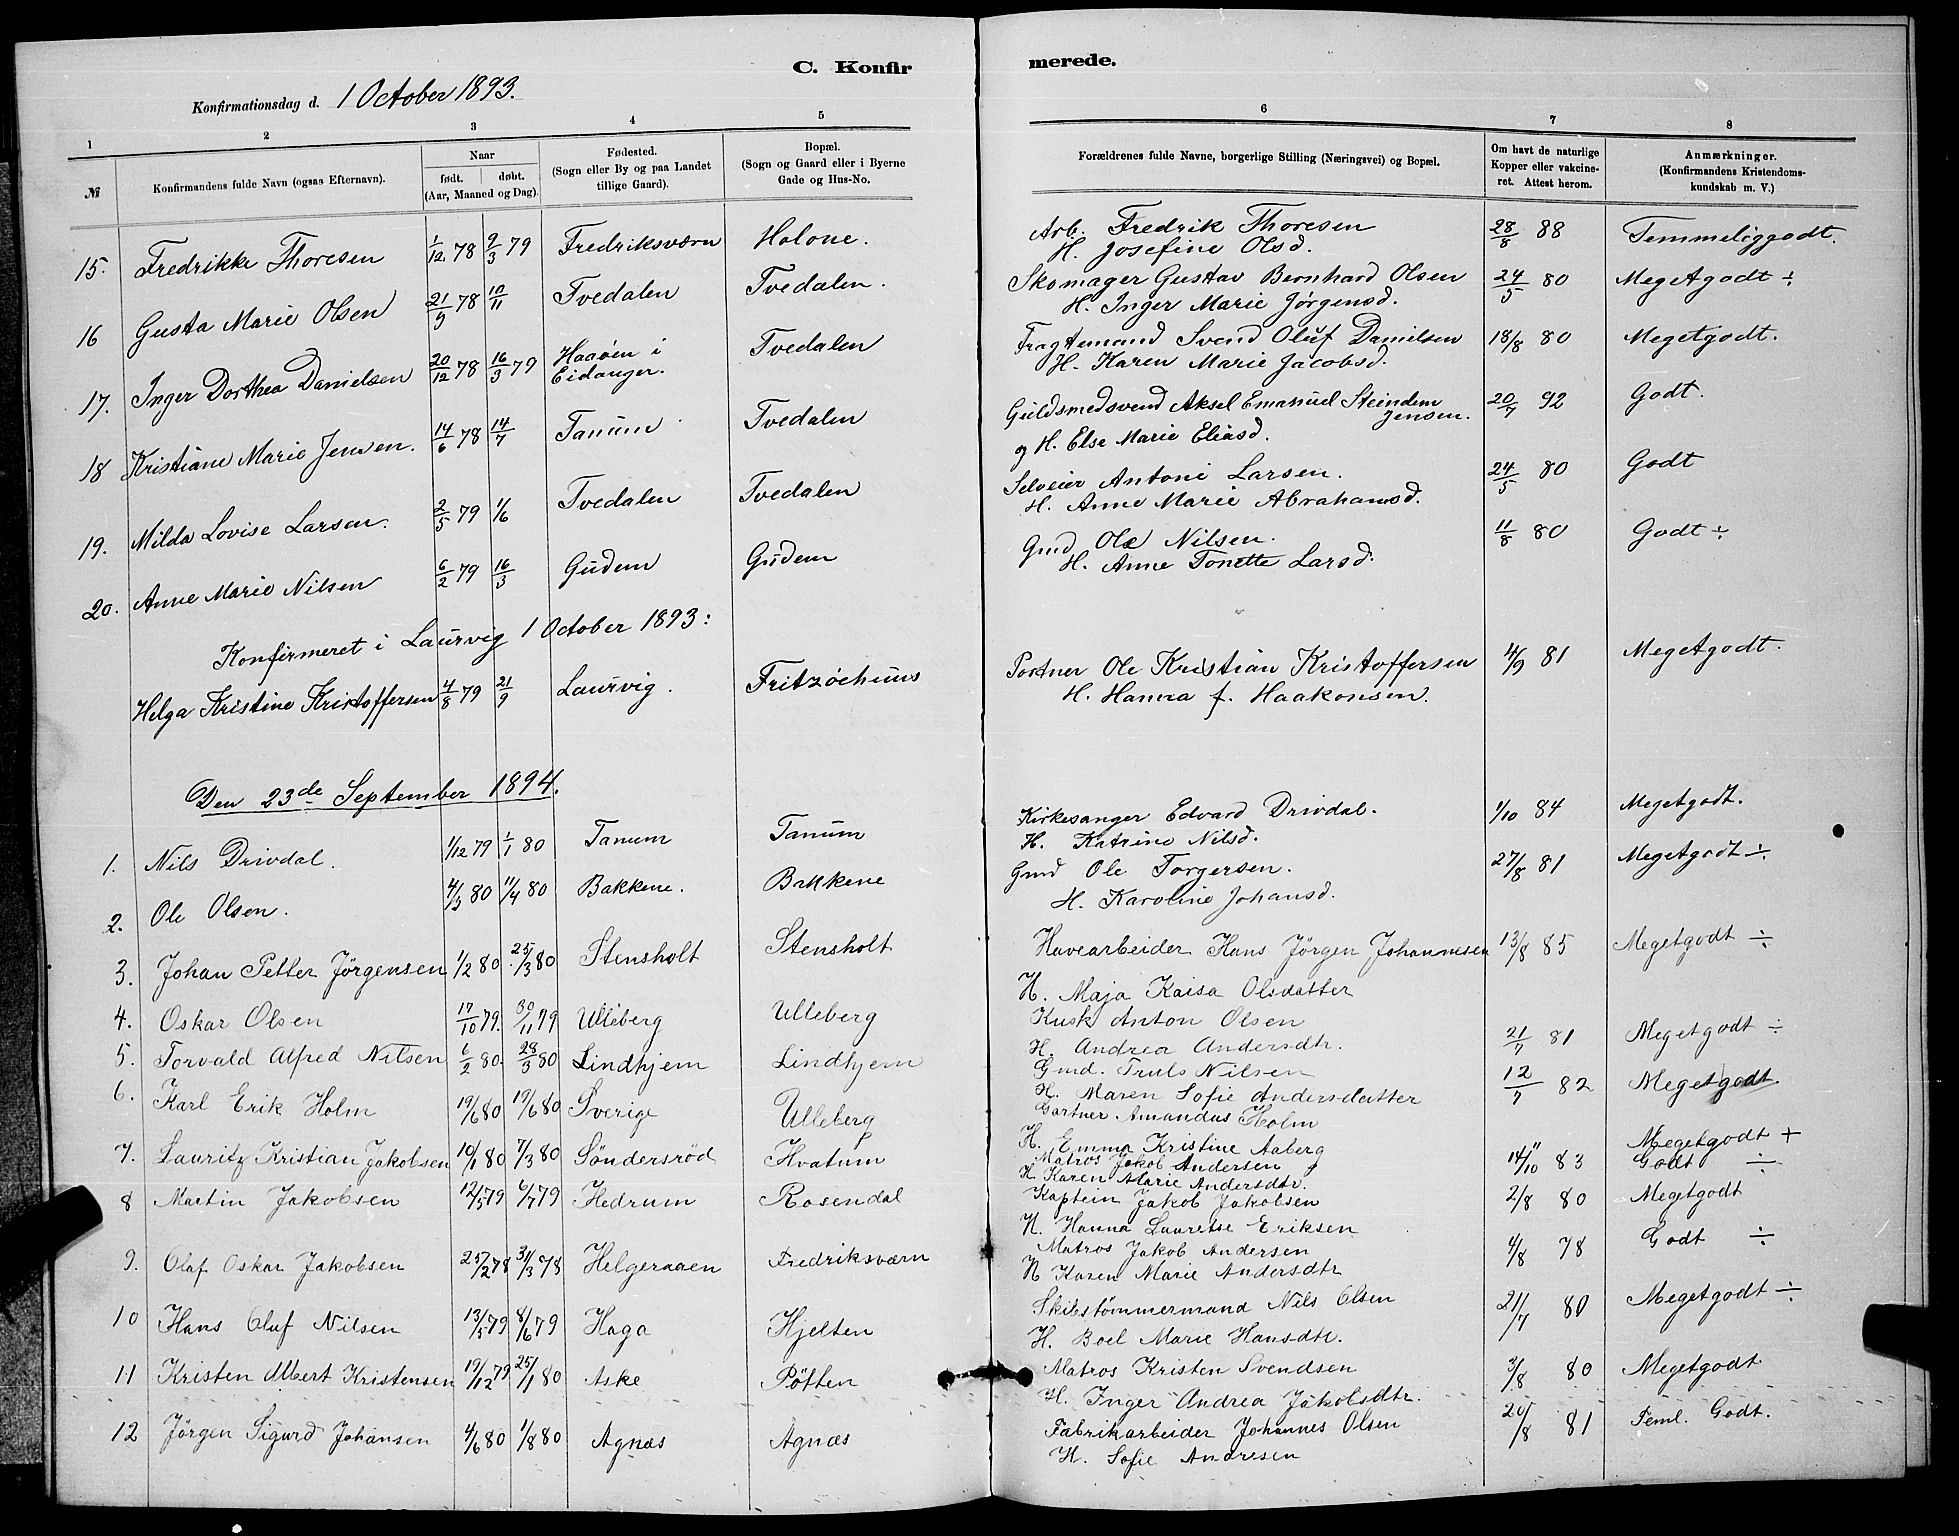 C. Konfirmerede.
Konfirmationsdag d. 1 October 1893.
1 2 3 4 5 6 7 8
№ Konfirmandens fulde Navn (ogsaa Efternavn). Naar født. døbt. (Aar, Maaned og Dag). Fødested. (Sogn eller By og paa Landet tillige Gaard). Bopæl. (Sogn og Gaard eller i Byerne Gade og Hus-No. Forældrenes fulde Navne, borgerlige Stilling (Næringsvei) og Bopæl. Om havt de naturlige Kopper eller vakcineret. Attest herom. Anmærkninger. (Konfirmandens Kristendomskundskab m. V.)
15. Fredrikke Thoresen 1/12 78 9/3 79 Fredriksværn Holone. Arb. Fredrik Thoresen 28/8 88 Temmeliggodt.
H. Josefine Olsd.
16 Gusta Marie Olsen 21/9 78 10/11 Tvedalen Tvedalen. Skomager Gustav Bernhard Olsen 24/5 80 Megetgodt ÷
H. Inger Marie Jørgensd.
17. Inger Dorthea Danielsen 20/12 78 16/3 79 Haaøen i Eidanger. Tvedalen Fragtemand Svend Oluf Danielsen 18/8 80 Megetgodt.
H. Karen Marie Jacobsd.
18 Kristiane Marie Jensen. 14/6 78 14/7 Tanum Tvedalen Guldsmedsvend Aksel Emanuel Steindem Jensen. 20/7 92 Godt.
og H. Else Marie Eliasd.
19. Milda Lovise Larsen. 2/5 79 1/6 Tvedalen Tvedalen Selveier Antoni Larsen. 24/5 80 Godt
H. Anne Marie Abrahamsd.
20. Anne Marie Nilsen 6/2 79 16/3 Gudem Gudem Gmd Ole Nilsen. 11/8 80 Godt ÷
H. Anne Tonette Larsd.
Konfirmeret i Laurvig 1 October 1893:
Helga Kristine Kristoffersen 4/8 79 21/9 Laurvig. Fritzøehuus Portner Ole Kristian Kristoffersen 4/9 81 Megetgodt.
H. Hanna f. Haakonsen.
Den 23de September 1894.
1. Nils Drivdal. 1/12 79 1/1 80 Tanum Tanum Kirkesanger Edvard Drivdal. 1/10 84 Megetgodt.
H. Katrine Nilsd.
2. Ole Olsen. 4/3 80 11/4 80 Bakkene. Bakkene Gmd Ole Torgersen. 27/8 81 Megetgodt ÷
H. Karoline Johansd.
3. Johan Petter Jørgensen 1/2 80 25/3 80 Stensholt Stensholt Havearbeider Hans Jörgen Johannesen 13/8 85 Megetgodt ÷
H. Maja Kaisa Olsdatter
4. Oskar Olsen 17/10 79. 30/11 79 Ulleberg Ulleberg Kusk Anton Olsen 21/7 81 Megetgodt ÷
H. Andrea Andersdtr.
5. Torvald Alfred Nilsen 6/2 80. 28/3 80 Lindhjem Lindhjem Gmd. Truls Nilsen 12/7 82 Megetgodt.
H. Maren Sofie Andersdatter
6. Karl Erik Holm 19/6 80 19/6 80 Sverige Ulleberg Gartner Amandus Holm Megetgodt +
H. Emma Kristine Aaberg
7. Lauritz Kristian Jakobsen 10/1 80 7/3 80 Söndersröd Hvatum Matros Jakob Andersen 14/10 83 Godt ÷
H Karen Marie Andersdtr.
8 Martin Jakobsen 12/5 79 6/7 79 Hedrum Rosendal Kaptein Jakob Jakobsen 2/8 80 Megetgodt
H. Hanna Lauretse Eriksen
9. Olaf Oskar Jakobsen 25/2 78 31/3 78 Helgeraaen Fredriksværn Matros Jakob Andersen 4/8 78 Godt ÷
H Karen Marie Andersdtr
10 Hans Oluf Nilsen 13/5 79 8/6 79 Haga Hjelten Skibstømmermand Nils Olsen 21/7 80 Megetgodt ÷
H. Boel Marie Hansdtr.
11 Kristen Albert Kristensen 19/12 79 25/1 80 Aske Pötten Matros Kristen Svendsen 3/8 80 Megetgodt
H. Inger Andrea Jakobsdtr.
12 Jörgen Sigurd Johansen 4/6 80 1/8 80 Agnæs Agnæs Fabrikarbeider Johannes Olsen 20/8 81 Teml. Godt.
H. Sofie Andresen